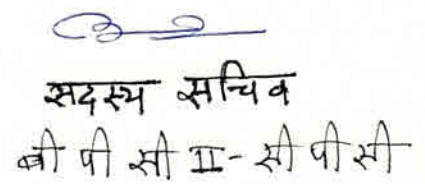 सदस्य सचिव
बी पी सी II - सी पी सी